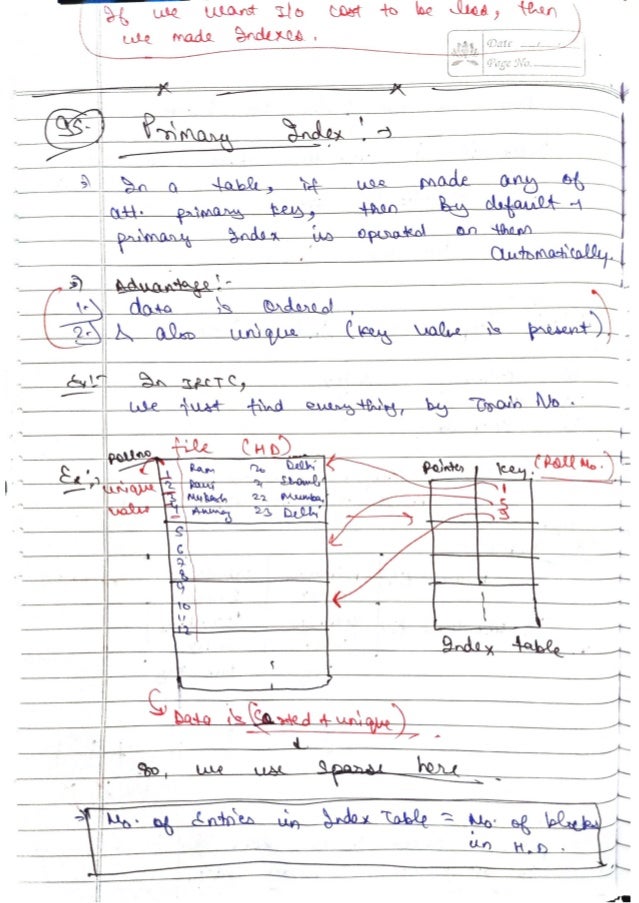 If we want I/o cost to be less, then
we made Indexes.
Date
Page No.
95. Primary Index :→
In a table, if we made any of
att. primary key, then By default →
primary Index is operated on them
automatically.
Advantage :-
1.) data is ordered
2.) & also unique (key value is present)
Ex:- In IRCTC,
we just find everything, by Train No.
file (HD)
Rollno
Pointer Key (Roll No.)
Ex:-
unique
value
1 Ram 20 Delhi
2 Ravi
3 Mukesh 22 Mumbai
4 23 Delhi
5
6
7
8
9
10
11
12
1
5
9
Index table
Data is (Sorted + unique)
So, we use Sparse here
⇒ No. of Entries in Index Table = No. of blocks
in H.D.